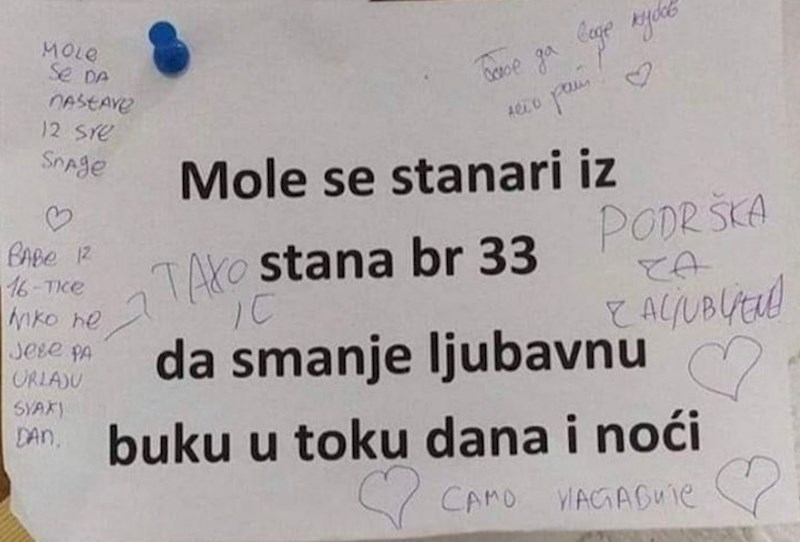 MOLE
SE DA
NASTAVE
IZ SVE
SNAGE
Боље да воде љубав
него рат!
Mole se stanari iz
stana br 33
da smanje ljubavnu
buku u toku dana i noći
BABE IZ
16-TICE
NIKO NE
JEBE PA
URLAJU
SVAKI
DAN.
TAKO
JE
PODRŠKA
ZA
ZALJUBLJENE
САМО НАСТАВИТЕ